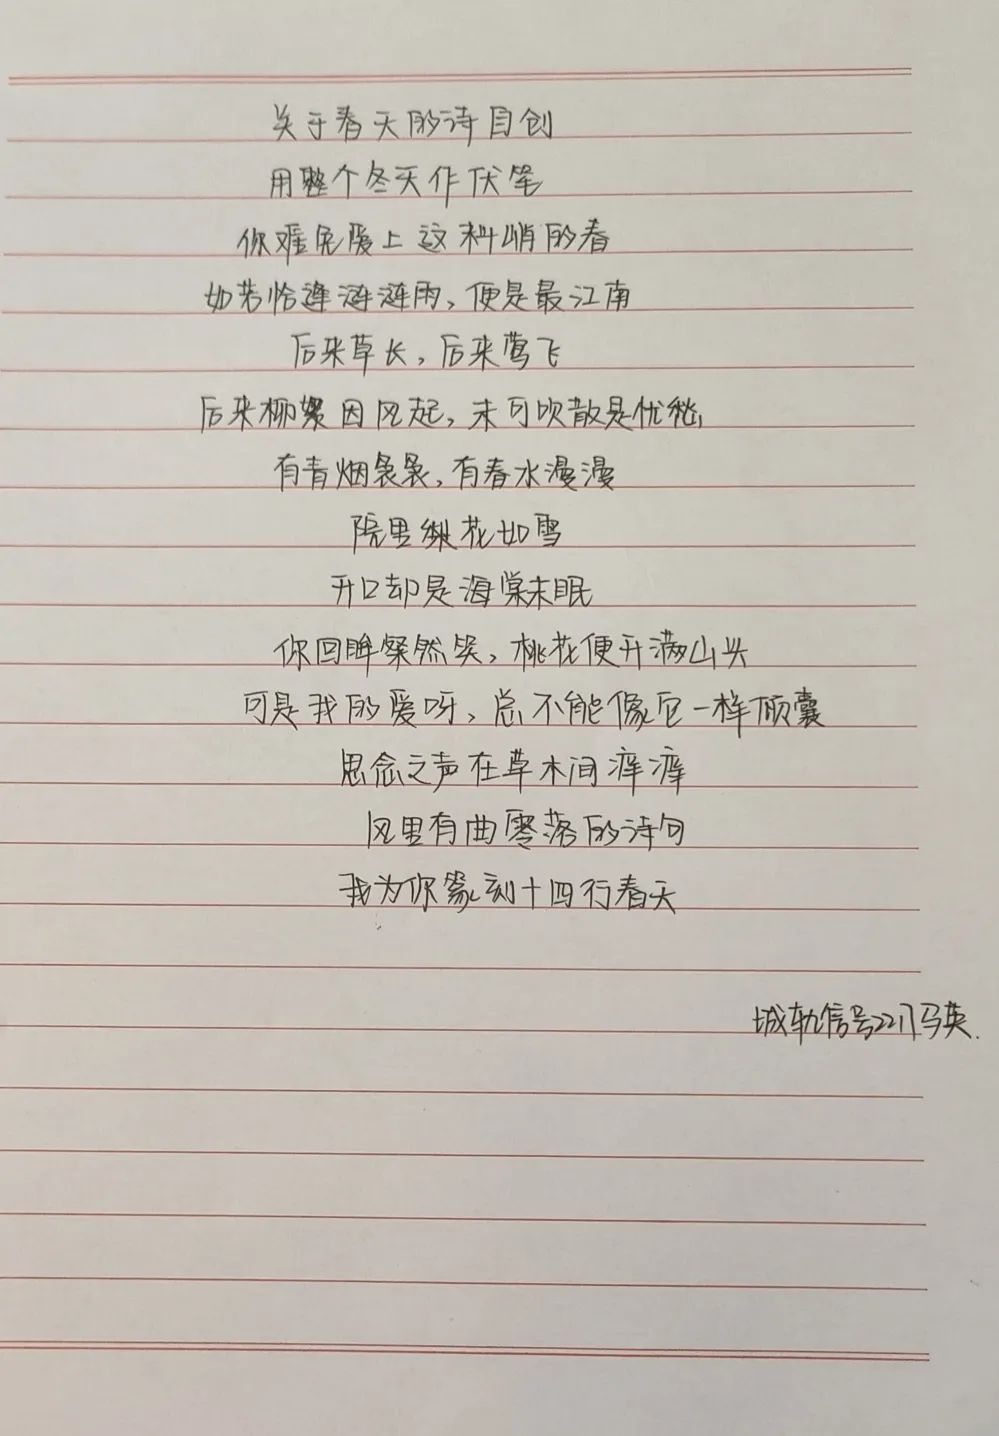 关于春天的诗自创
用整个冬天作伏笔
你难免爱上这料峭的春
如若恰逢涟涟雨，便是最江南
后来草长，后来莺飞
后来柳絮因风起，未可吹散是忧愁
有青烟袅袅，有春水漫漫
院里梨花如雪
开口却是海棠未眠
你回眸粲然笑，桃花便开满山头
可是我的爱呀，总不能像它一样倾囊
思念之声在草木间滓滓
风里有曲零落的诗句
我为你篆刻十四行春天
城轨信号2217马英.